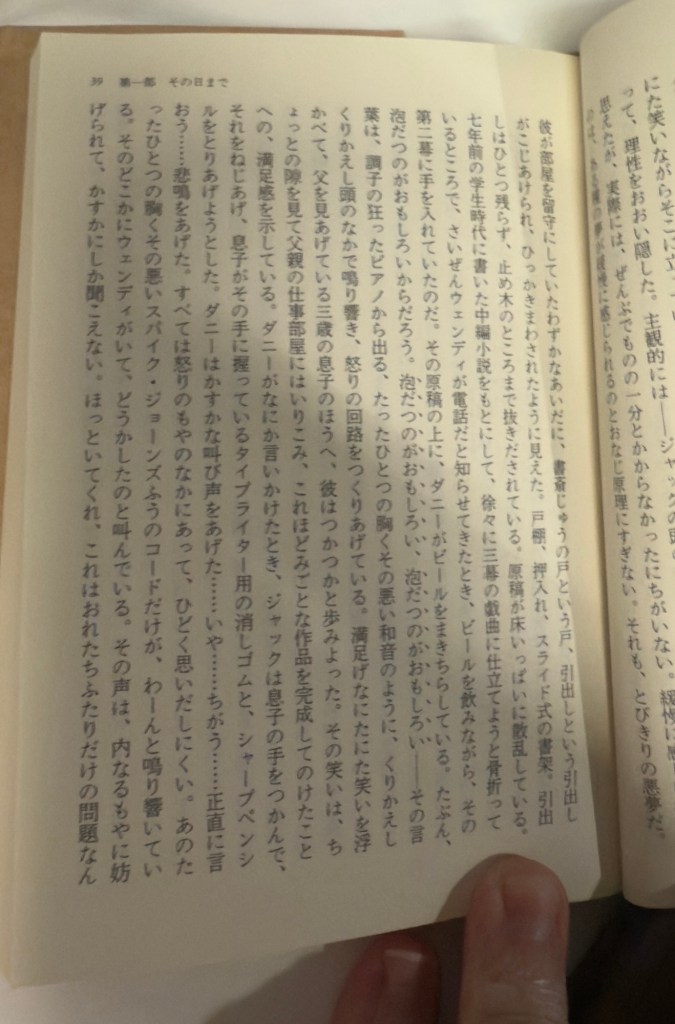 にた笑いながらそこに立
って、理性をおおい隠した。主観的には――ジャックの頭の
思えたが、実際には、ぜんぶでものの一分とかからなかったにちがいない。緩慢に感じ
夢が緩慢に感じられるのとおなじ原理にすぎない。それも、とびきりの悪夢だ。
彼が部屋を留守にしていたわずかなあいだに、書斎じゅうの戸という戸、引出しという引出し
がこじあけられ、ひっかきまわされたように見えた。戸棚、押入れ、スライド式の書架。引出
しはひとつ残らず、止め木のところまで抜きだされている。原稿が床いっぱいに散乱している。
七年前の学生時代に書いた中編小説をもとにして、徐々に三幕の戯曲に仕立てようと骨折って
いるところで、さいぜんウェンディが電話だと知らせてきたとき、ビールを飲みながら、その
第二幕に手を入れていたのだ。その原稿の上に、ダニーがビールをまきちらしている。たぶん、
泡だつのがおもしろいからだろう。泡だつのがおもしろい、泡だつのがおもしろい――その言
葉は、調子の狂ったピアノから出る、たったひとつの胸くその悪い和音のように、くりかえし
くりかえし頭のなかで鳴り響き、怒りの回路をつくりあげている。満足げなにたにた笑いを浮
かべて、父を見あげている三歳の息子のほうへ、彼はつかつかと歩みよった。その笑いは、ち
ょっとの隙を見て父親の仕事部屋にはいりこみ、これほどみごとな作品を完成してのけたこと
への、満足感を示している。ダニーがなにか言いかけたとき、ジャックは息子の手をつかんで、
それをねじあげ、息子がその手に握っているタイプライター用の消しゴムと、シャープペンシ
ルをとりあげようとした。ダニーはかすかな叫び声をあげた……いや……ちがう……正直に言
おう……悲鳴をあげた。すべては怒りのもやのなかにあって、ひどく思いだしにくい。あのた
ったひとつの胸くその悪いスパイク・ジョーンズふうのコードだけが、わーんと鳴り響いてい
る。そのどこかにウェンディがいて、どうかしたのと叫んでいる。その声は、内なるもやに妨
げられて、かすかにしか聞こえない。ほっといてくれ、これはおれたちふたりだけの問題なん
39 第一部 その日まで